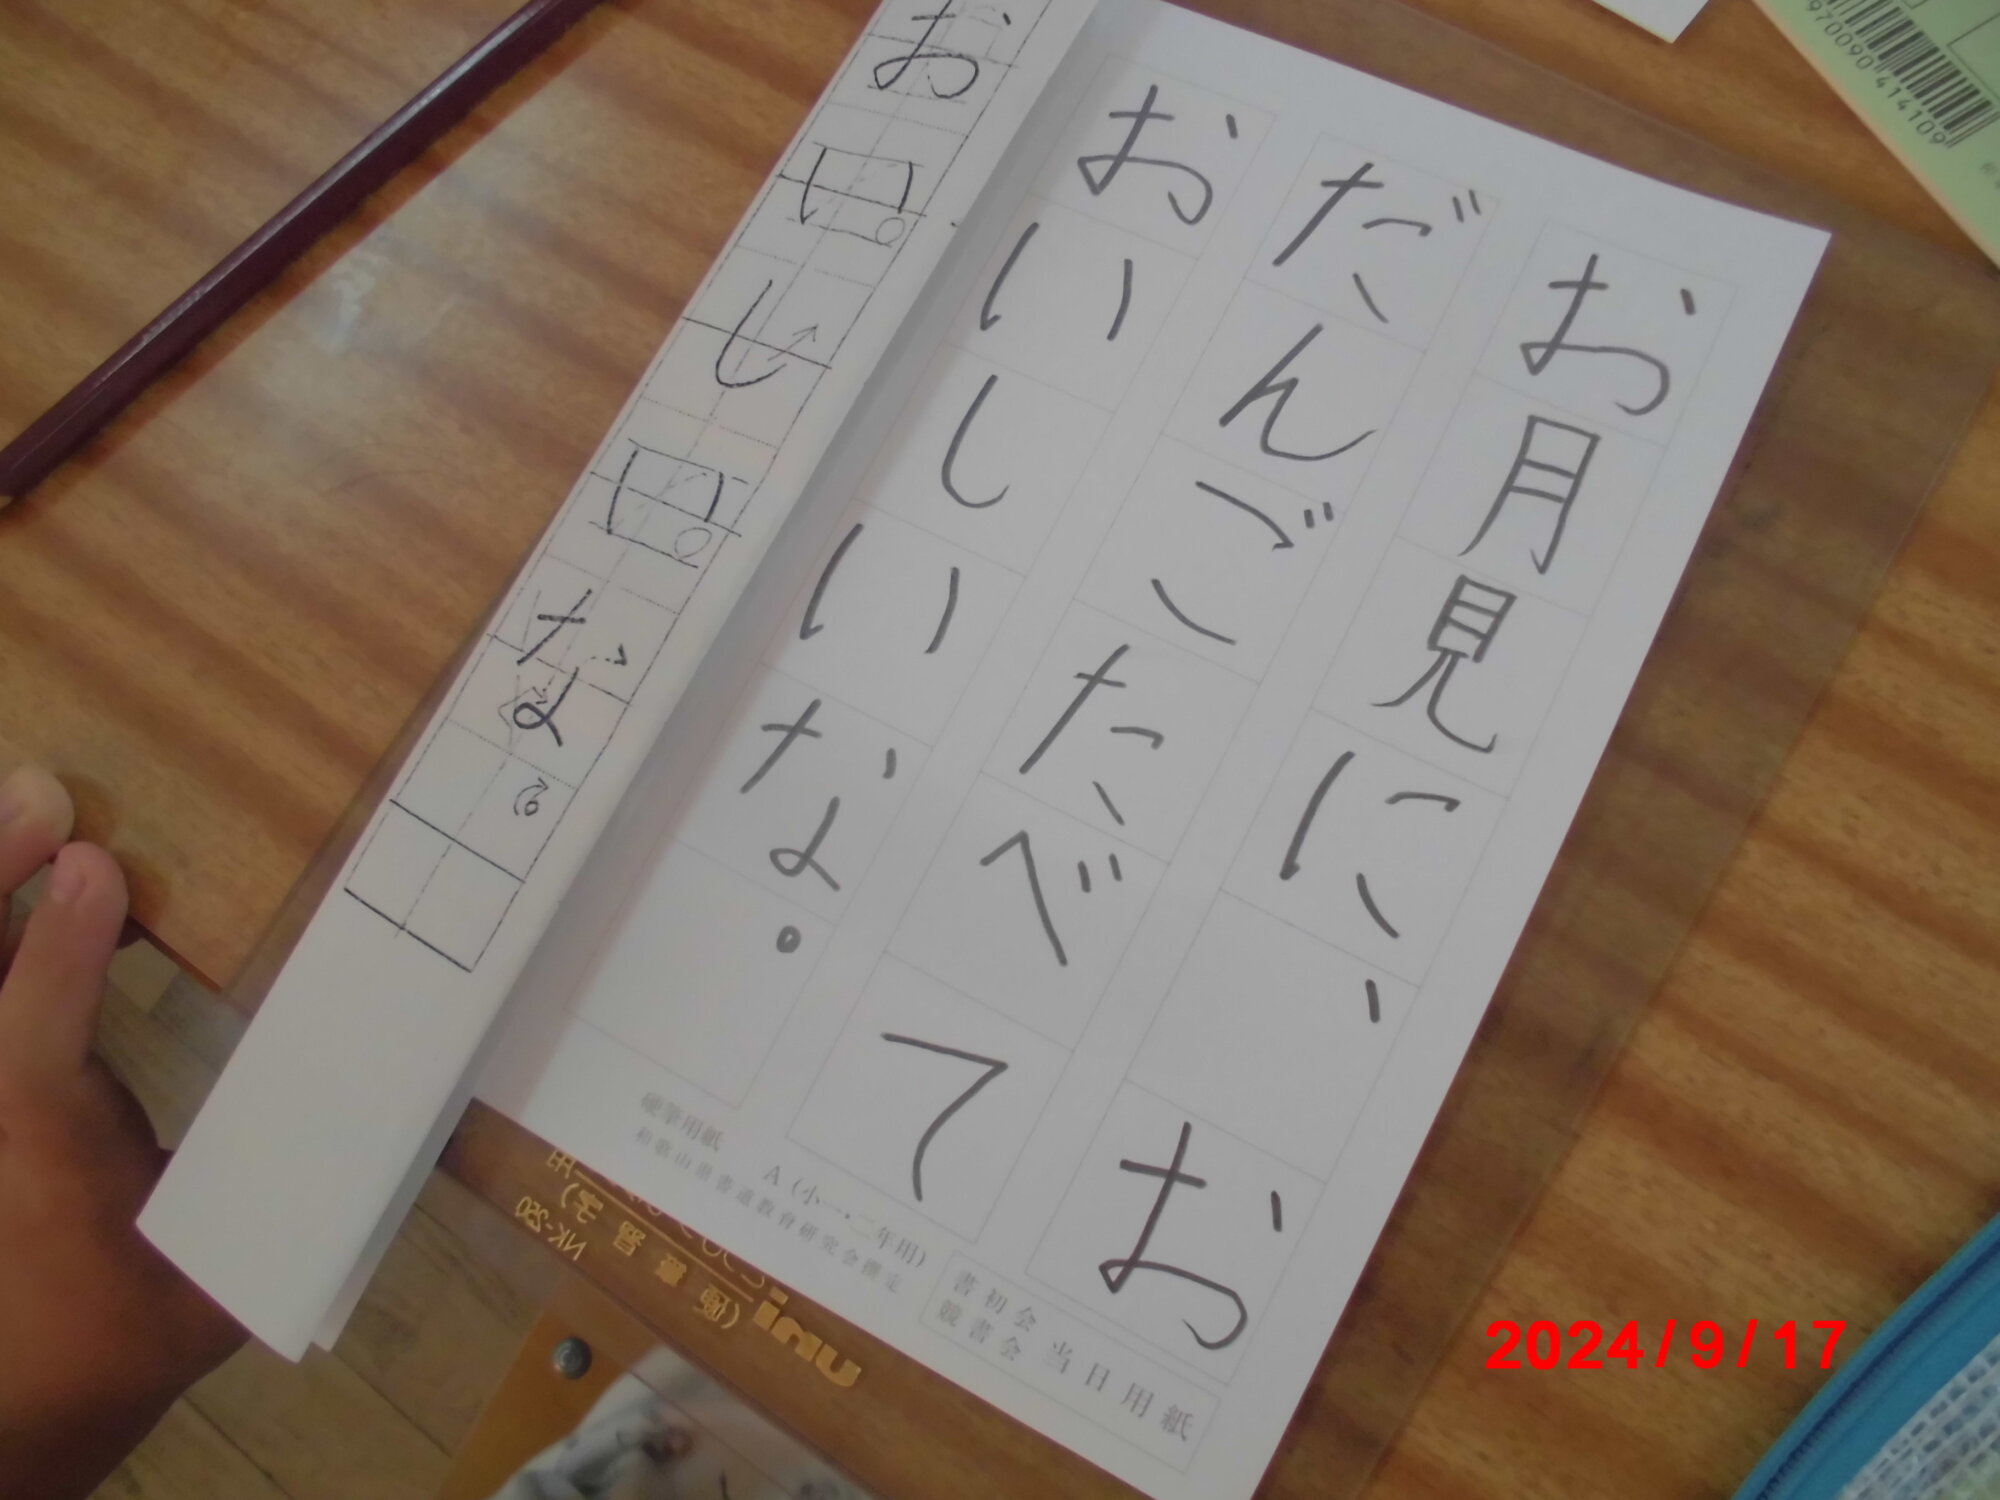 お月見に、お
だんごたべて
おいしいな。
おいしいな。
硬筆用紙 A(小一・二年用)
和歌山県書道教育研究会撰定
書初会
競書会
当日用紙
uni
NK-290
9700904141109
2024/9/17